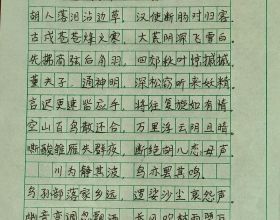 胡人落泪沾边草 汉使断肠对归客
古戍苍苍烽火寒 大荒阴沉飞雪白
先拂商弦后角羽 四郊秋叶惊摵摵
董夫子 通神明 深松窃听来妖精
言迟更速皆应手 将往复旋如有情
空山百鸟散还合 万里浮云阴且晴
嘶酸雏雁失群夜 断绝胡儿恋母声
川为静其波 鸟亦罢其鸣
乌孙部落家乡远 逻娑沙尘哀怨声
幽音变调忽飘洒 长风吹林雨堕瓦